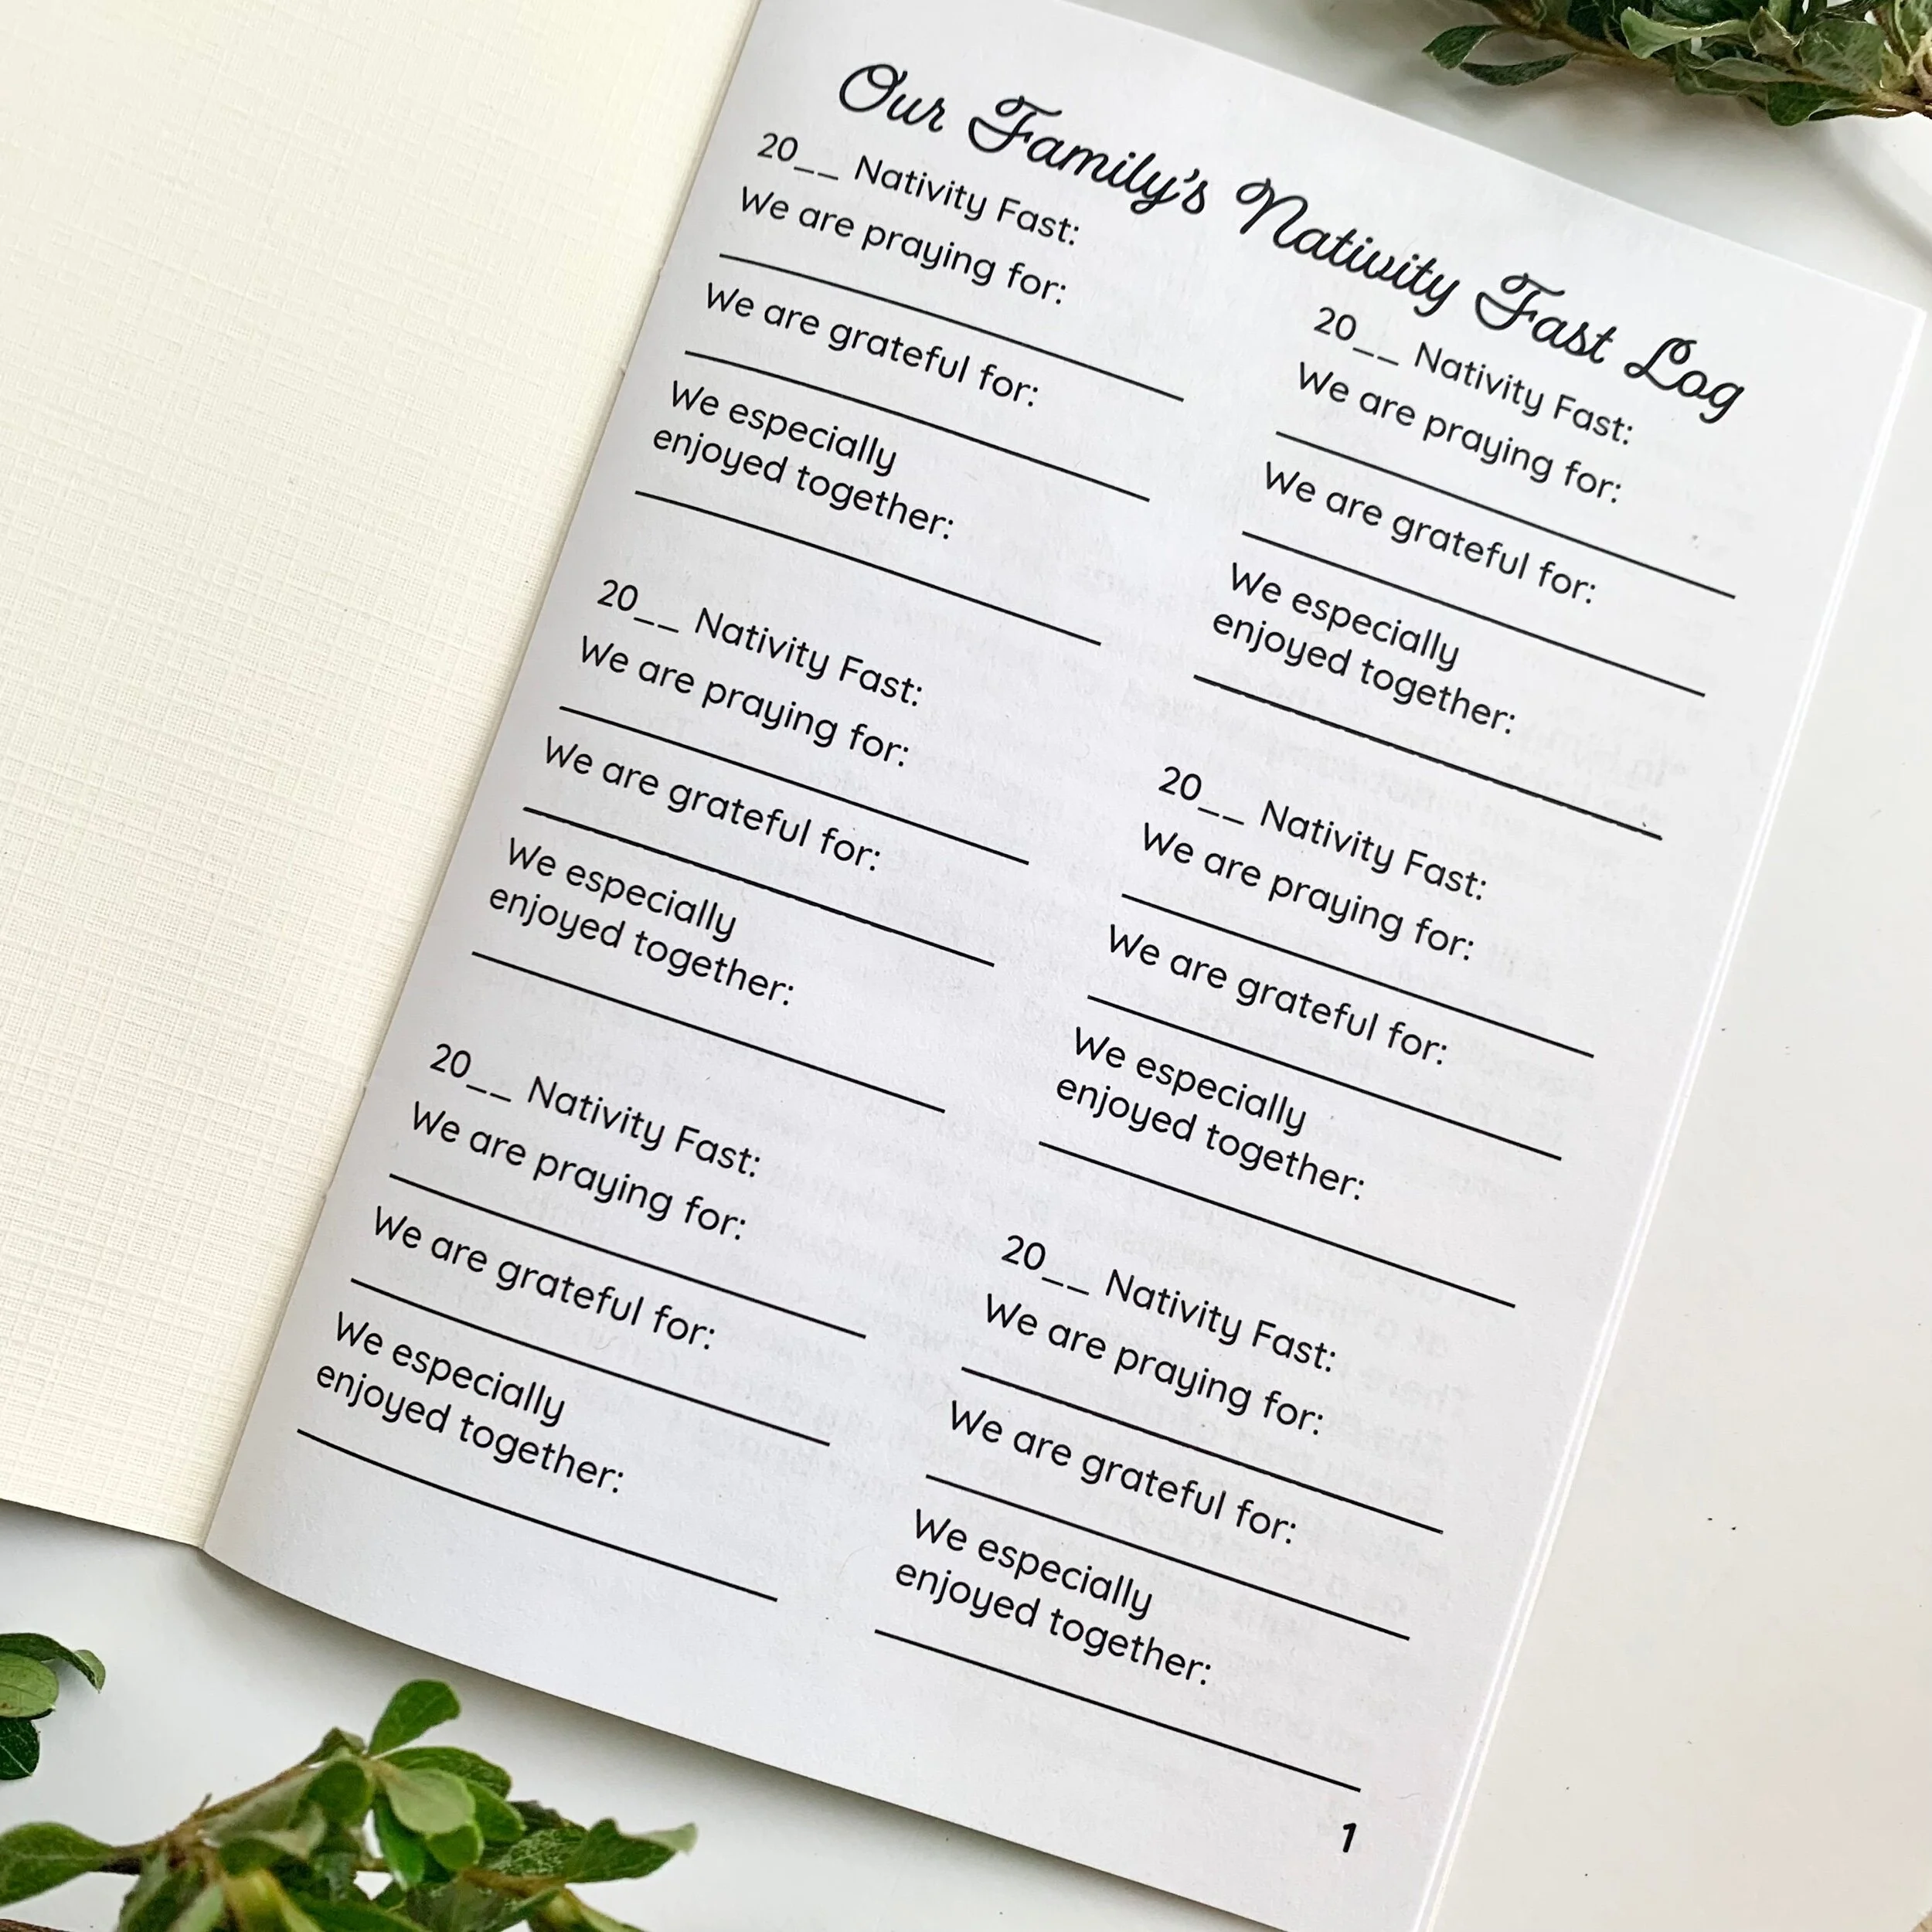 Our Family's Nativity Fast Log
20__ Nativity Fast:
We are praying for:
We are grateful for:
We especially
enjoyed together:
20__ Nativity Fast:
We are praying for:
We are grateful for:
We especially
enjoyed together:
20__ Nativity Fast:
We are praying for:
We are grateful for:
We especially
enjoyed together:
20__ Nativity Fast:
We are praying for:
We are grateful for:
We especially
enjoyed together:
20__ Nativity Fast:
We are praying for:
We are grateful for:
We especially
enjoyed together:
20__ Nativity Fast:
We are praying for:
We are grateful for:
We especially
enjoyed together:
1